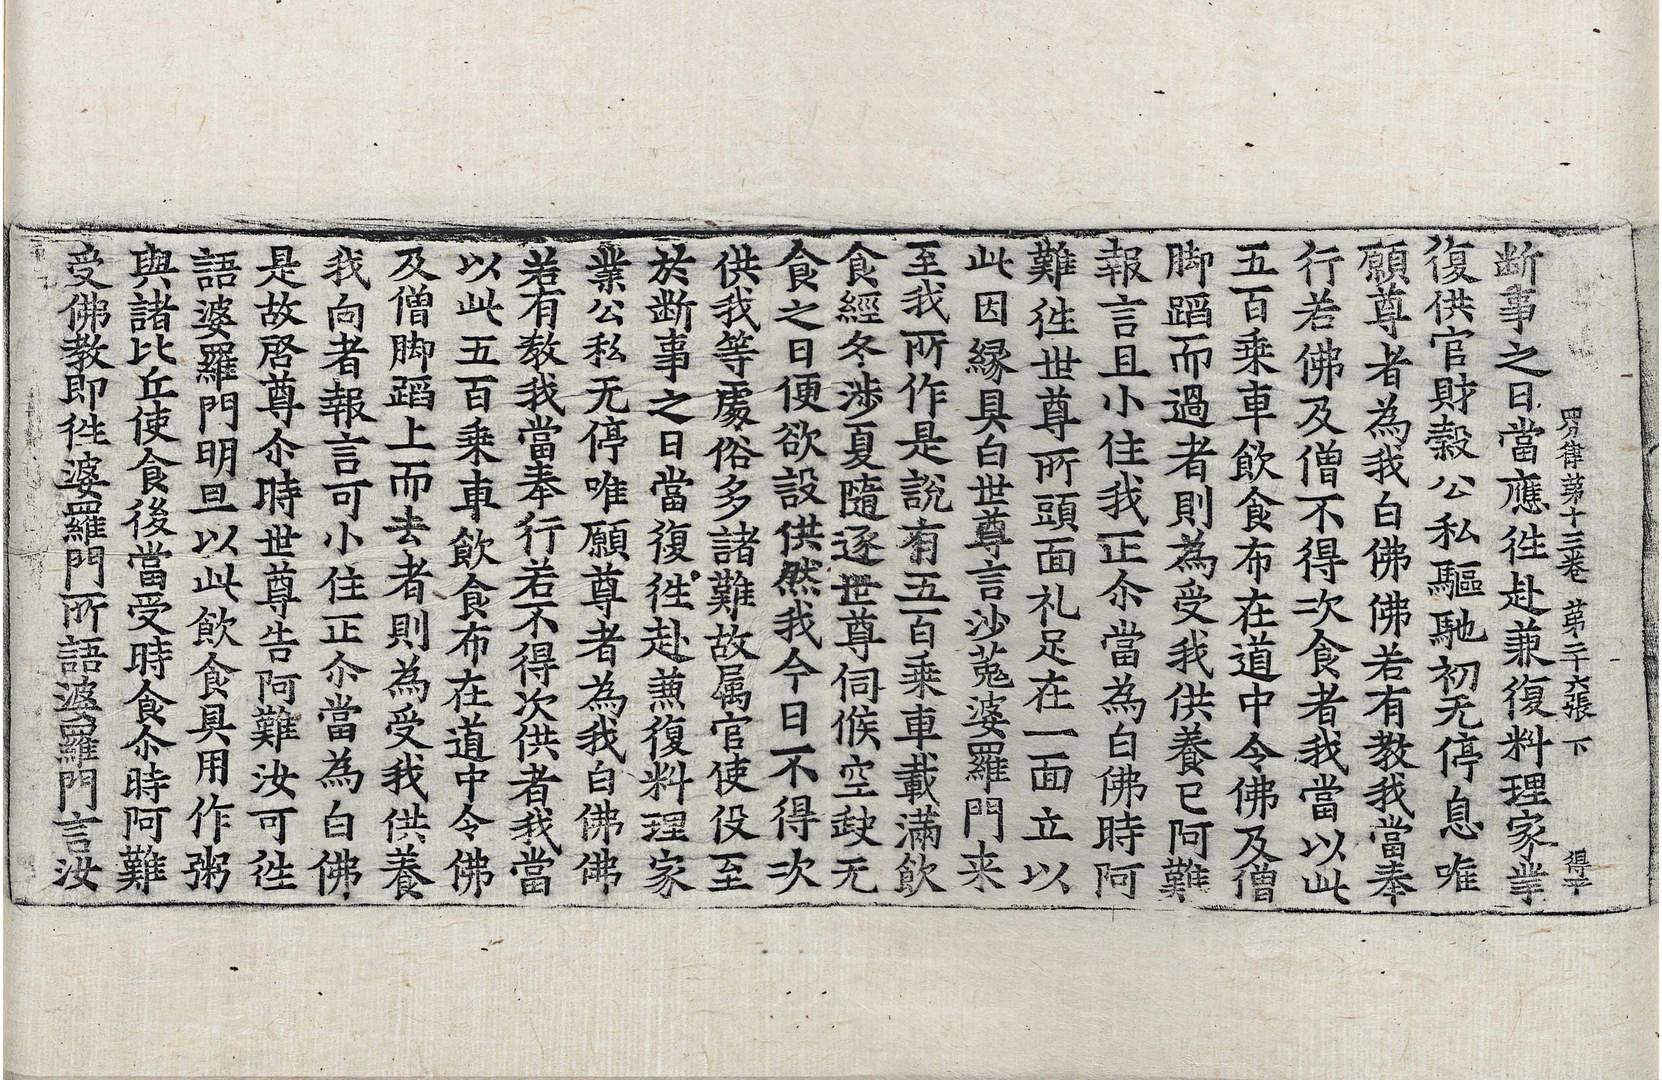 四分律第十三卷 第二十六張 下 得平
断事之日當應徃赴兼復料理家業
復供官財穀公私驅馳初无停息唯
願尊者為我白佛佛若有教我當奉
行若佛及僧不得次食者我當以此
五百乗車飲食布在道中令佛及僧
脚蹈而過者則為受我供養已阿難
報言且小住我正尒當為白佛時阿
難徃世尊所頭面礼足在一面立以
此因縁具白世尊言沙菟婆羅門来
至我所作是說有五百乗車載滿飲
食經冬渉夏隨逐世尊伺候空缺无
食之日便欲設供然我今日不得次
供我等處俗多諸難故属官使役至
於断事之日當復徃赴兼復料理家
業公私无停唯願尊者為我白佛佛
若有教我當奉行若不得次供者我當
以此五百乗車飲食布在道中令佛
及僧脚蹈上而去者則為受我供養
我向者報言可小住正尒當為白佛
是故啓尊尒時世尊告阿難汝可徃
語婆羅門明旦以此飲食具用作粥
與諸比丘使食後當受時食尒時阿難
受佛教即徃婆羅門所語婆羅門言汝